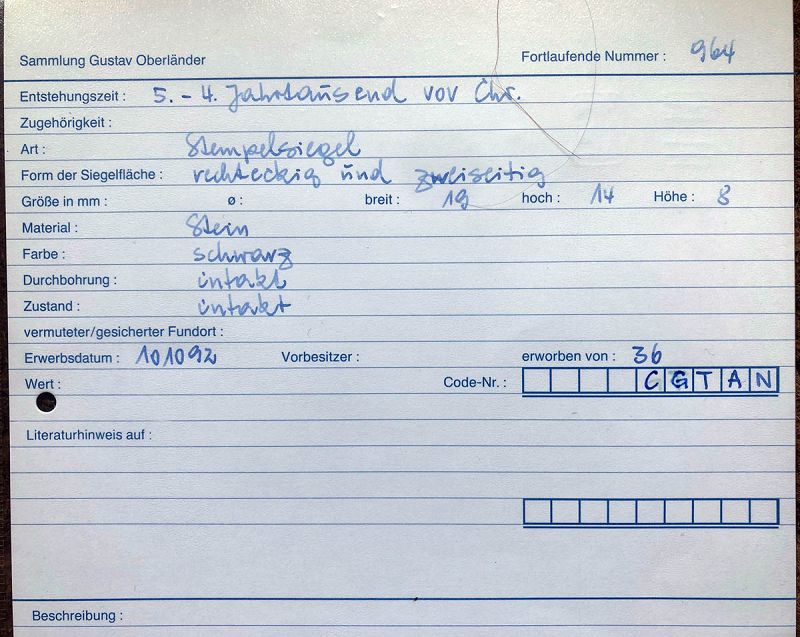 Sammlung Gustav Oberländer Fortlaufende Nummer : 964
Entstehungszeit : 5. - 4. Jahrtausend vor Chr.
Zugehörigkeit :
Art : Stempelsiegel
Form der Siegelfläche : rechteckig und zweiseitig
Größe in mm : ø : breit : 19 hoch : 14 Höhe : 8
Material : Stein
Farbe : schwarz
Durchbohrung : intakt
Zustand : intakt
vermuteter/gesicherter Fundort :
Erwerbsdatum : 101092 Vorbesitzer : erworben von : 36
Wert : Code-Nr. : CGTAN
Literaturhinweis auf :
Beschreibung :